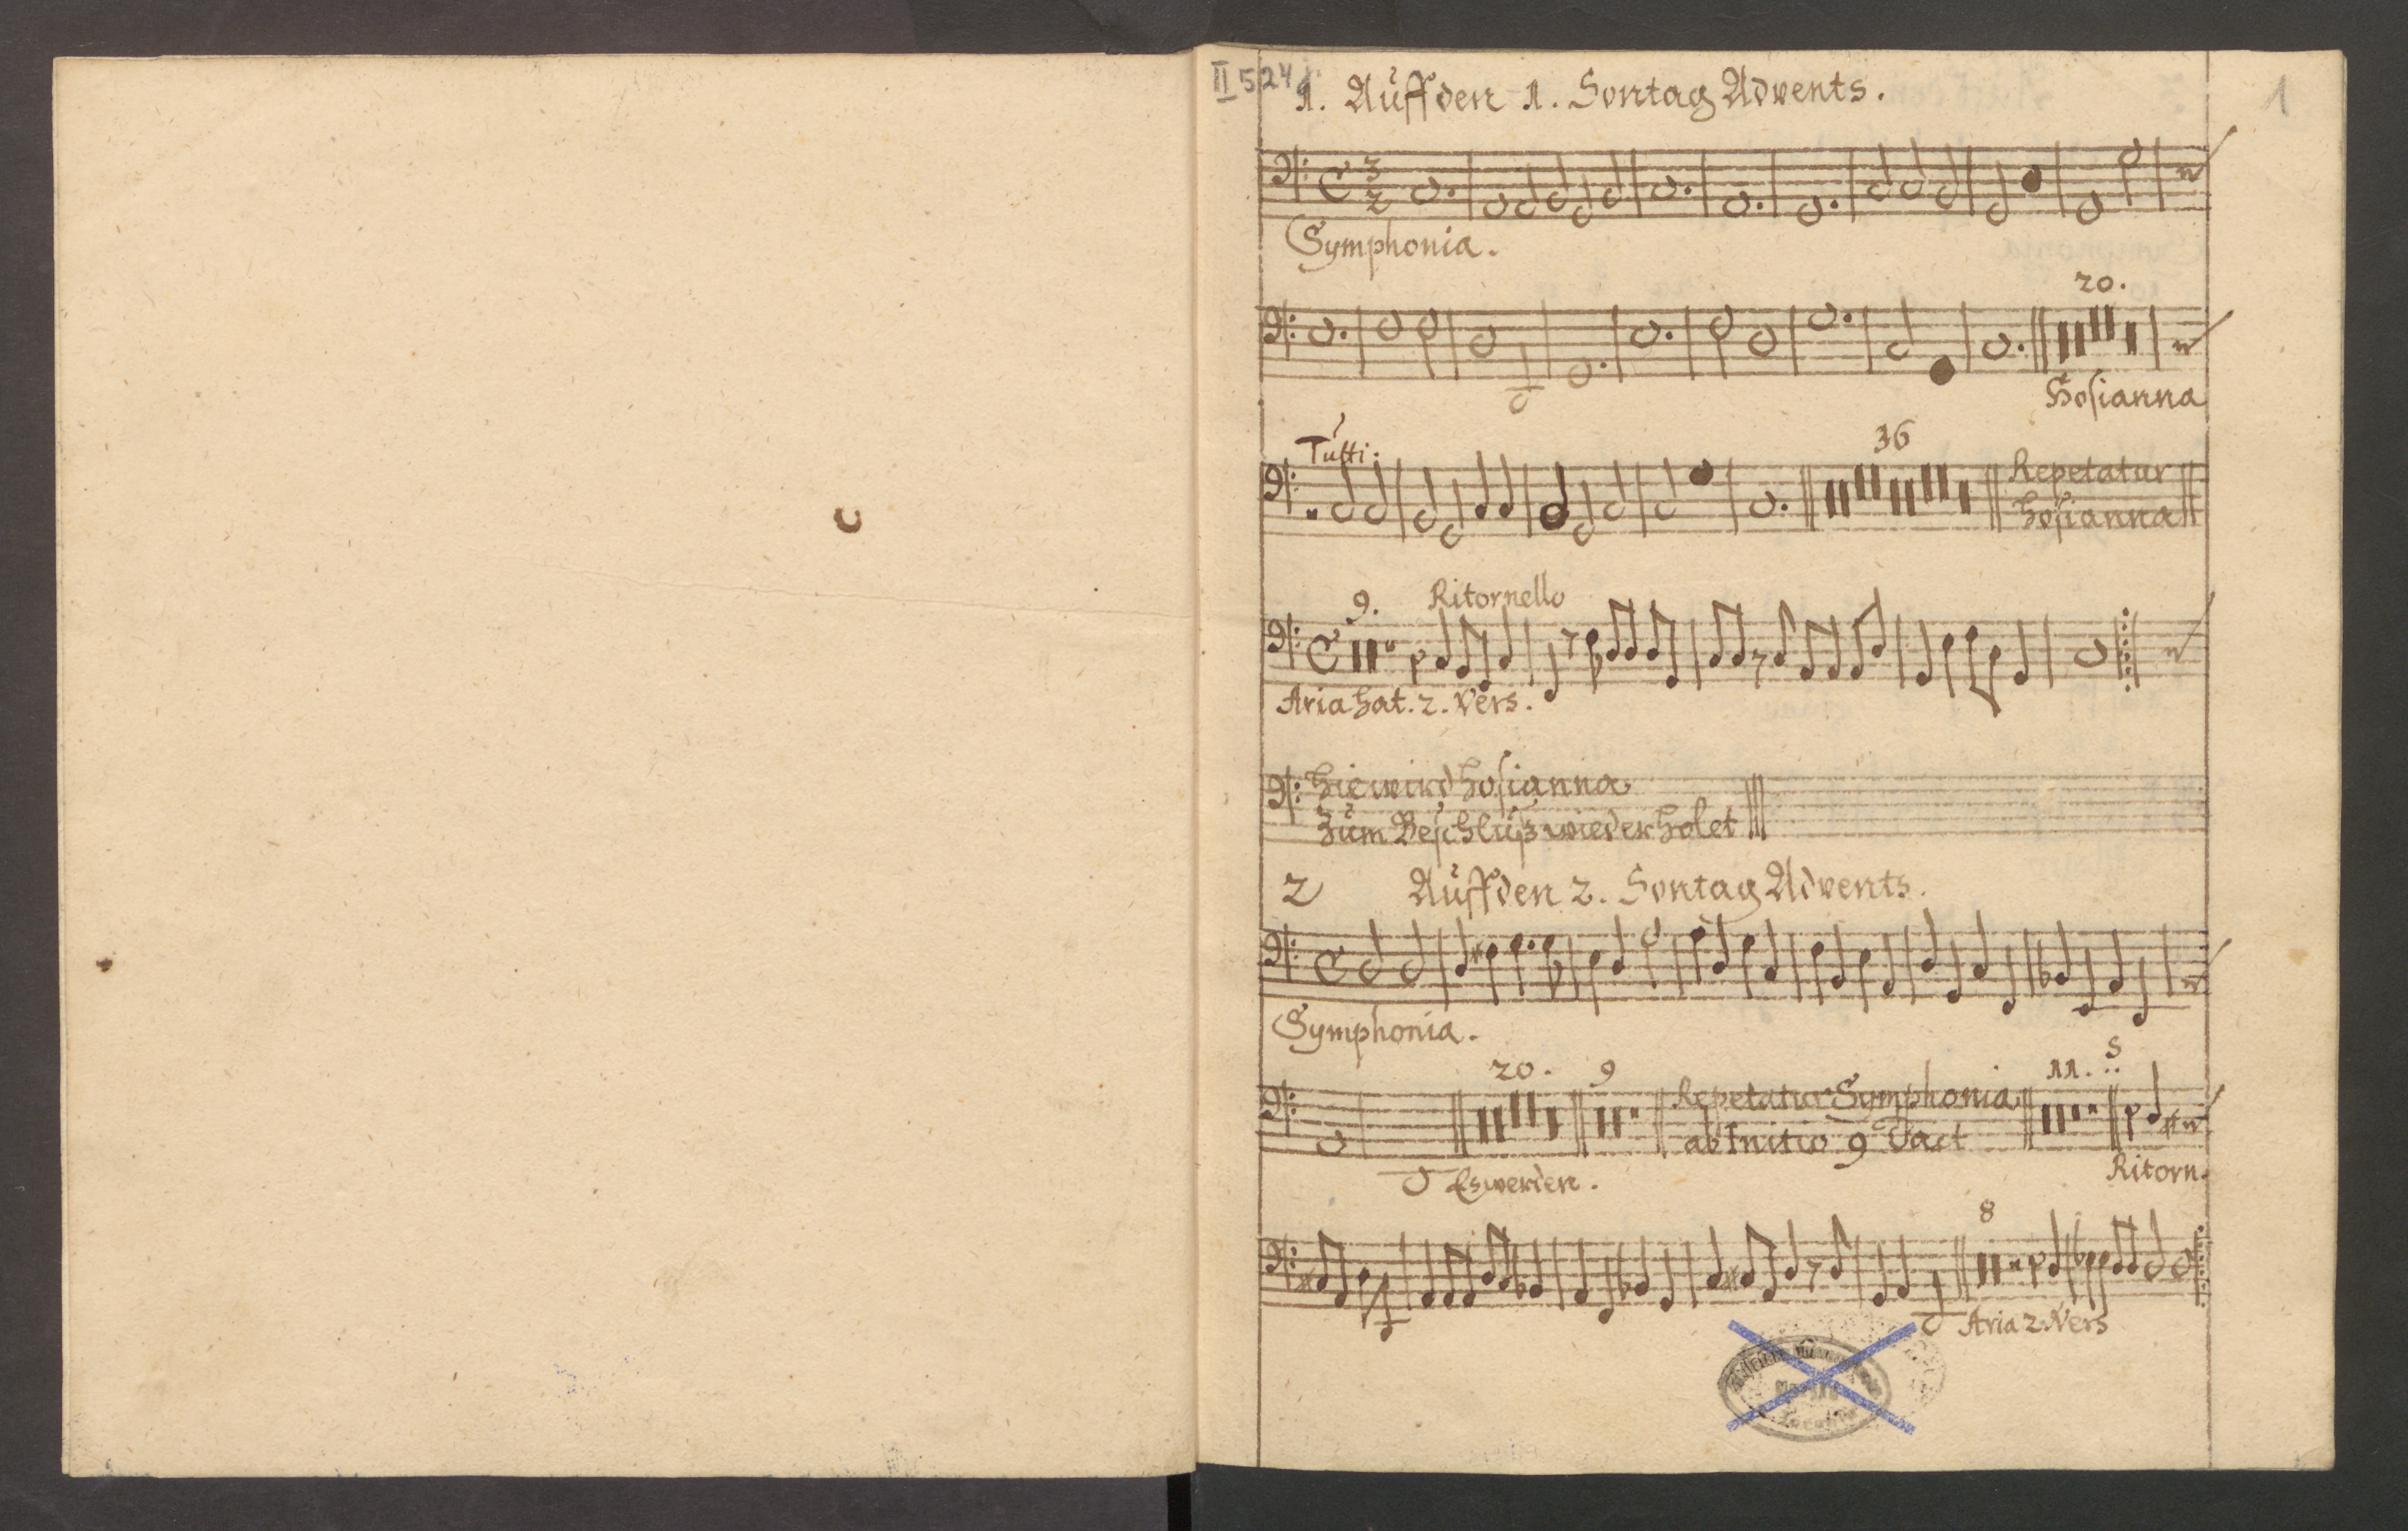 II 524
1. Auff den 1. Sontag Advents.
1
Symphonia.
20.
Hosianna
Tutti:
36
Repetatur
hosianna
9.
Ritornello
Aria hat. 2. Vers.
hie wird hosianna
zum Beschluß wiederholet
2 Auff den 2. Sontag Advents.
Symphonia.
20. 9 11. 5
Repetatur Symphonia
ab Initio 9 Tact
Es werden.
Ritorn.
8
Aria 2. Vers